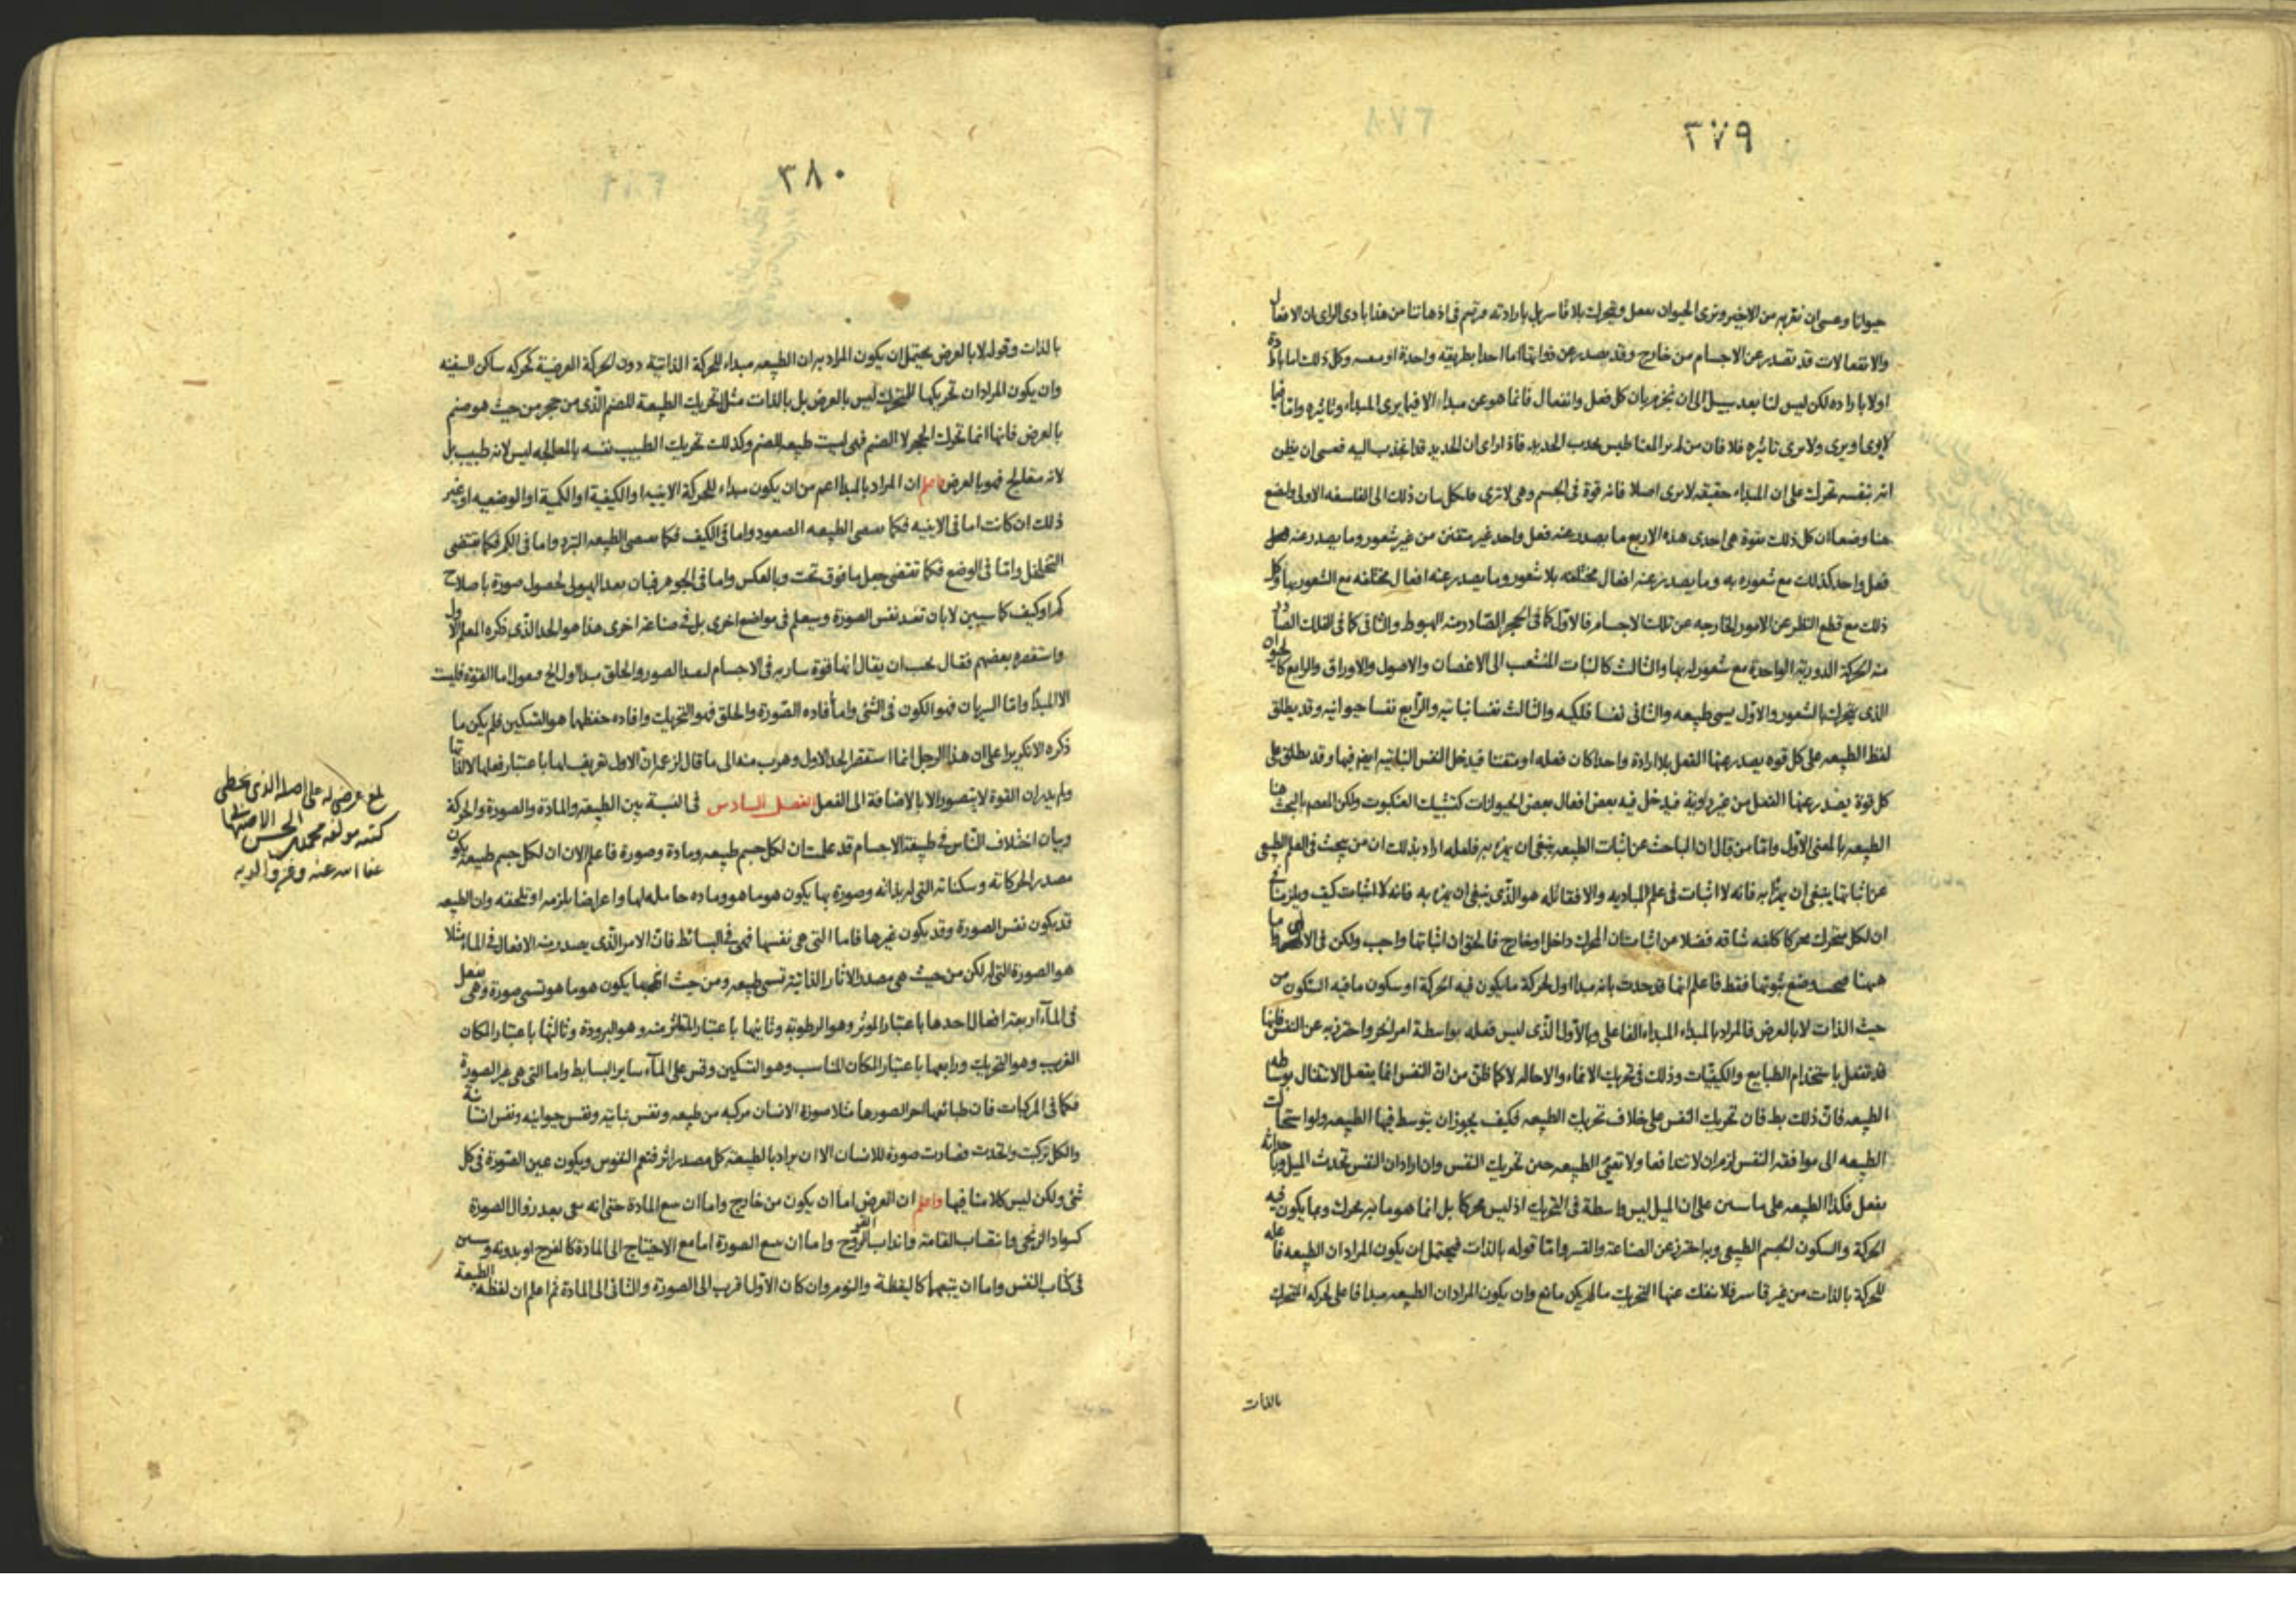 ٣٧٩
حيوانا وعسى ان نقربه من الاخير ونرى الحيوان يفعل ويتحرك بلا قاسر بل بارادته فيرتسم في اذهاننا من هذا بادى الراى ان الافعال
والانفعالات قد تصدر عن الاجسام من خارج وقد يصدر عن ذواتها اما احدا بطريقه واحدة او معه وكل ذلك اما بارادة
او لا باراده لكن ليس لنا بعد سبيل الى ان نجزم بان كل فعل وانفعال فانما هو عن مبداء الا فيما يرى المبداء وتاثيره واما فيما
لا يرى او يرى ولا يرى تاثيره فلا فان من لم ير المغناطيس يجذب الحديد فاذا راى ان الحديد قد انجذب اليه فعسى ان يظن
انه بنفسه تحرك على ان المبداء حقيقه لا يرى اصلا فانه قوة في الجسم وهي لا ترى فلنكل بيان ذلك الى الفلسفه الاولى ولنضع
هنا وضعا ان كل ذلك بقوة هي احدى هذه الاربع ما يصدر عنه فعل واحد غير متفنن من غير شعور وما يصدر عنه
فعل واحد كذلك مع شعوره به وما يصدر عنه افعال مختلفه بلا شعور وما يصدر عنه افعال مختلفه مع الشعور بها وكل
ذلك مع قطع النظر عن الامور الخارجه عن تلك الاجسام فالاول كما في الحجر الصادر منه الهبوط والثاني كما في الفلك الصادر
منه الحركة الدورية الواحدة مع شعور له بها والثالث كالنبات المنشعب الى الاغصان والاصول والاوراق والرابع كالحيوان
الذي يتحرك بالشعور والاول يسمى طبيعه والثاني نفسا فلكيه والثالث نفسا نباتيه والرابع نفسا حيوانيه وقد يطلق
لفظ الطبيعه على كل قوه يصدر عنها الفعل بلا ارادة واحدا كان فعله او متفننا فيدخل النفس النباتيه ايضا فيها وقد يطلق على
كل قوة يصدر عنها الفعل من غير روية فيدخل فيه بعض افعال بعض الحيوانات كتشبيك العنكبوت ولكن المهم بالبحث هنا
الطبيعه بالمعنى الاول واما من قال ان الباحث عن اثبات الطبيعه ينبغي ان يهزء به فلعله اراد بذلك ان من يبحث في العلم الطبيعي
عن اثباتها ينبغي ان يهزأ به فانه لا اثبات في علم المباديه والا فقائله هو الذي ينبغي ان يهزء به فانه لا اثبات كيف ويلزمنا
ان لكل متحرك محركا كلفه شاقه فضلا عن اثبات ان المحرك داخل او خارج فالحق ان اثباتها واجب ولكن في الالهى واما
ههنا وضع ثبوتها فقط فاعلم انها قد حدت بانه مبدا اول لحركة ما يكون فيه الحركة او سكون ما فيه السكون من
حيث الذات لا بالعرض فالمراد بالمبداء المبداء الفاعلى وبالاول الذي ليس فعله بواسطة امر اخر واحترز به عن النفس فانها
قد تفعل باستخدام الطبايع والكيفيات وذلك في تحريك الانماء والاحاله لا كما ظن من ان النفس انما يفعل الانتقال بوساطه
الطبيعه فان ذلك بط فان تحريك النفس على خلاف تحريك الطبيعه فكيف يجوز ان يتوسط فيها الطبيعه ولو استحالت
الطبيعه الى موافقه النفس لزم ان لا تتدافعا ولا تعيى الطبيعه حين تحريك النفس وان اراد ان النفس تحدث الميل وباحداثه
يفعل فكذا الطبيعه على ما سنبين على ان الميل ليس واسطة في التحريك اذ ليس محركا بل انما هو ما به يحرك وبما يكون فيه
الحركة والسكون الجسم الطبيعي وبه احترز عن الصناعة والقسر واما قوله بالذات فيحتمل ان يكون المراد ان الطبيعه فاعله
للحركة بالذات من غير قاسر فلا ينفك عنها التحريك ما لم يكن مانع وان يكون المراد ان الطبيعه مبدا فاعلى لحركه المتحرك
بالذات
٣٨٠
بالذات وقوله لا بالعرض يحتمل ان يكون المراد به ان الطبيعه مبداء للحركة الذاتية دون الحركة العرضية كحركه ساكن السفينه
وان يكون المراد ان تحريكها للمتحرك ليس بالعرض بل بالذات مثل تحريك الطبيعة للصنم الذي من حجر من حيث هو صنم
بالعرض فانها انما تحرك الحجر لا الصنم فهي ليست طبيعه للصنم وكذلك تحريك الطبيب نفسه بالمعالجه ليس لانه طبيب بل
لانه متعالج فهو بالعرض فاعلم ان المراد بالمبدا اعم من ان يكون مبداء للحركة الاينيه او الكيفية او الكمية او الوضعيه او غير
ذلك ان كانت اما في الاينيه فكما يقتضى الطبيعه الصعود واما في الكيف فكما يقتضى الطبيعه التبرد واما في الكم فكما يقتضى
التخلخل واما في الوضع فكما تقتضى جعل ما فوق تحت وبالعكس واما في الجوهر فبان يعد الهيولى لحصول صورة باصلاح
كم او كيف كما سيبين لا بان تفيد نفس الصورة وسيعلم في مواضع اخرى بل في صناعة اخرى هذا هو الحد الذي ذكره المعلم الاول
واستقصره بعضهم فقال يجب ان يقال انها قوة ساريه في الاجسام لتفيد الصور والخلق مبدا اول الخ فنقول اما القوة فليست
الا المبدا واما السريان فهو الكون في الشئ واما افاده الصورة والخلق فهو التحريك وافاده حفظهما هو التسكين فلم يكن ما
ذكره الا تكريرا على ان هذا الرجل انما استقصر الحد الاول وهرب منه الى ما قال لزعمه ان الاول تعريف لها باعتبار فعلها لا لذاتها
ولم يدر ان القوة لا يتصور الا بالاضافة الى الفعل الفصل السادس في النسبة بين الطبيعة والمادة والصورة والحركة
وبيان اختلاف الناس في طبيعة الاجسام قد علمت ان لكل جسم طبيعه ومادة وصورة فاعلم الان ان لكل جسم طبيعة يكون
مصدر الحركاته وسكناته التي له بذاته وصورة بها يكون هو ما هو وماده حامله لها واعراضا يلزمه او تلحقه وان الطبيعه
قد يكون نفس الصورة وقد يكون غيرها فاما التي هي نفسها فهي في البسائط فان الامر الذي يصدر منه الافعال في الماء مثلا
هو الصورة التي له لكن من حيث هي مصدر الاثار الذاتية تسمى طبيعه ومن حيث انها بها يكون هو ما هو تسمى صورة وهي يفعل
في الماء اربعة افعال احدها باعتبار الموثر وهو الرطوبة وثانيها باعتبار المتاثر منه وهو البرودة وثالثها باعتبار المكان
الغريب وهو التحريك ورابعها باعتبار المكان المناسب وهو التسكين وقس على الماء ساير البسايط واما التي هي غير الصورة
فكما في المركبات فان طبائعها اجزاء لصورها مثلا صورة الانسان مركبه من طبيعه ونفس نباتيه ونفس حيوانيه ونفس انسانية
والكل تركبت واتحدت فصارت صورة للانسان الا ان يراد بالطبيعة كل مصدر اثر فتعم النفوس ويكون عين الصورة في كل
شئ ولكن ليس كلامنا فيها واعلم ان العرض اما ان يكون من خارج واما ان يتبع المادة حتى انه يبقى بعد زوال الصورة
كسواد الزنجى وانتصاب القامة واندباب القروح واما ان يتبع الصورة اما مع الاحتياج الى المادة كالفرح او بدونه وسيبين
في كتاب النفس واما ان يتبعهما كاليقظة والنوم وان كان الاول اقرب الى الصورة والثاني الى المادة ثم اعلم ان لفظه الطبيعة
بلغ عرضي له على اصله الذي بخطى
كتبه مولفه محمد بن الحسن الاصفهانى
عفا الله عنه وغفر والديه